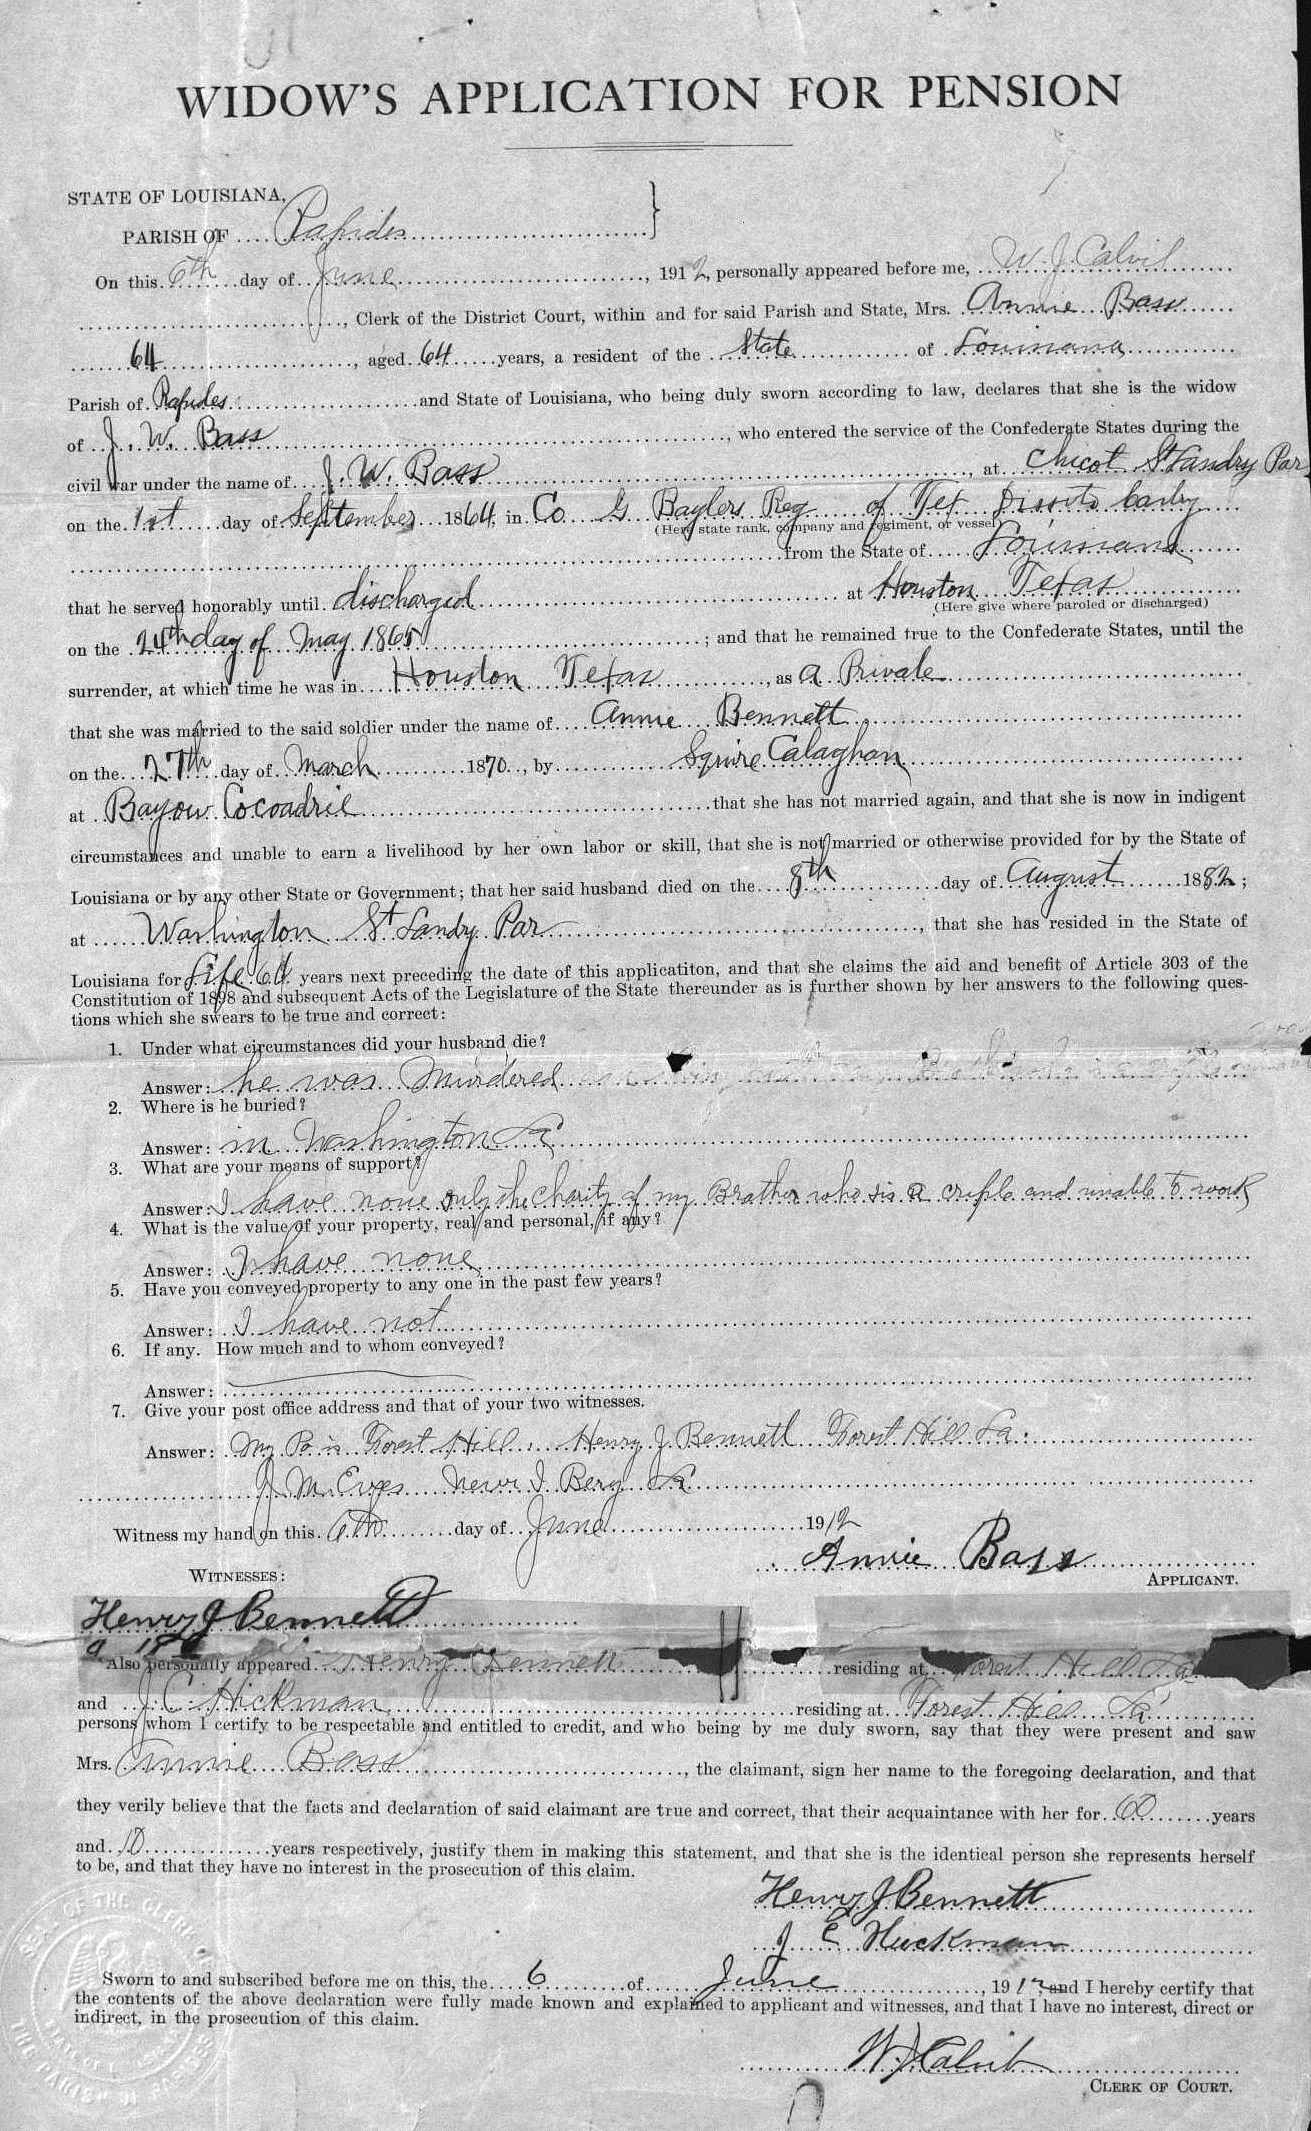 WIDOW'S APPLICATION FOR PENSION
STATE OF LOUISIANA,
PARISH OF Rapides
On this 6th day of June, 1912, personally appeared before me, W. J. Calvit
, Clerk of the District Court, within and for said Parish and State, Mrs. Annie Bass
64, aged 64 years, a resident of the State of Louisiana
Parish of Rapides and State of Louisiana, who being duly sworn according to law, declares that she is the widow
of J. W. Bass, who entered the service of the Confederate States during the
civil war under the name of J. W. Bass, at Chicot St Landry Par
on the 1st day of September 1864, in Co G Baylers Reg of Tex
(Here state rank, company and regiment, or vessel)
from the State of Louisiana
that he served honorably until discharged at Houston Texas
(Here give where paroled or discharged)
on the 24th day of May 1865; and that he remained true to the Confederate States, until the
surrender, at which time he was in Houston Texas, as a Private
that she was married to the said soldier under the name of Annie Bennett
on the 27th day of March 1870, by Squire Calaghan
at Bayou Cocoadril that she has not married again, and that she is now in indigent
circumstances and unable to earn a livelihood by her own labor or skill, that she is not married or otherwise provided for by the State of
Louisiana or by any other State or Government; that her said husband died on the 8th day of August 1882;
at Washington St Landry Par, that she has resided in the State of
Louisiana for Life 64 years next preceding the date of this applicatiton, and that she claims the aid and benefit of Article 303 of the
Constitution of 1898 and subsequent Acts of the Legislature of the State thereunder as is further shown by her answers to the following ques-
tions which she swears to be true and correct:
1. Under what circumstances did your husband die?
Answer: he was Murdered
2. Where is he buried?
Answer: in Washington La
3. What are your means of support?
Answer: I have none only the charity of my Brother who is a criple and unable to work
4. What is the value of your property, real and personal, if any?
Answer: I have none
5. Have you conveyed property to any one in the past few years?
Answer: I have not
6. If any. How much and to whom conveyed?
Answer:
7. Give your post office address and that of your two witnesses.
Answer: My Po is Forest Hill. Henry J Bennett Forest Hill La.
J M La
Witness my hand on this 6th day of June 1912
Annie Bass
APPLICANT.
WITNESSES:
Henry J Bennett
Also personally appeared Henry J Bennett residing at Forest Hill La
and J C Hickman residing at Forest Hill La
persons whom I certify to be respectable and entitled to credit, and who being by me duly sworn, say that they were present and saw
Mrs. Annie Bass, the claimant, sign her name to the foregoing declaration, and that
they verily believe that the facts and declaration of said claimant are true and correct, that their acquaintance with her for 60 years
and 10 years respectively, justify them in making this statement, and that she is the identical person she represents herself
to be, and that they have no interest in the prosecution of this claim.
Henry J Bennett
J C Hickman
Sworn to and subscribed before me on this, the 6 of June, 1912, and I hereby certify that
the contents of the above declaration were fully made known and explained to applicant and witnesses, and that I have no interest, direct or
indirect, in the prosecution of this claim.
W J Calvit
CLERK OF COURT.
SEAL OF THE CLERK
THE PARISH OF RAPIDES